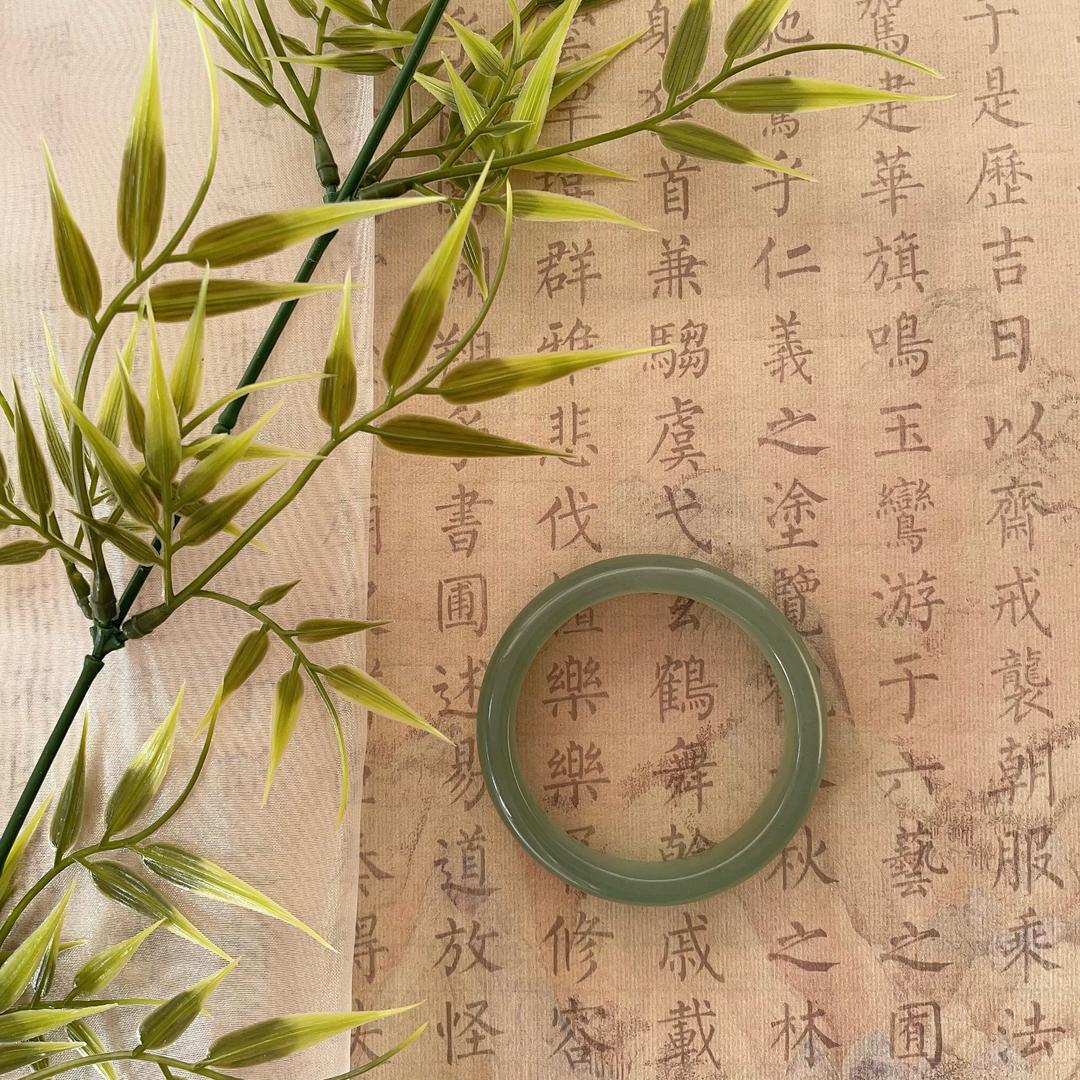 于是歷吉日以齋戒襲朝服乘法
駕建華旗鳴玉鸞游于六藝之囿
騖乎仁義之塗覽秋之林
首兼騶虞弋玄鶴舞幹戚載
群雅悲伐樂樂修容
翔乎書圃述易道放怪